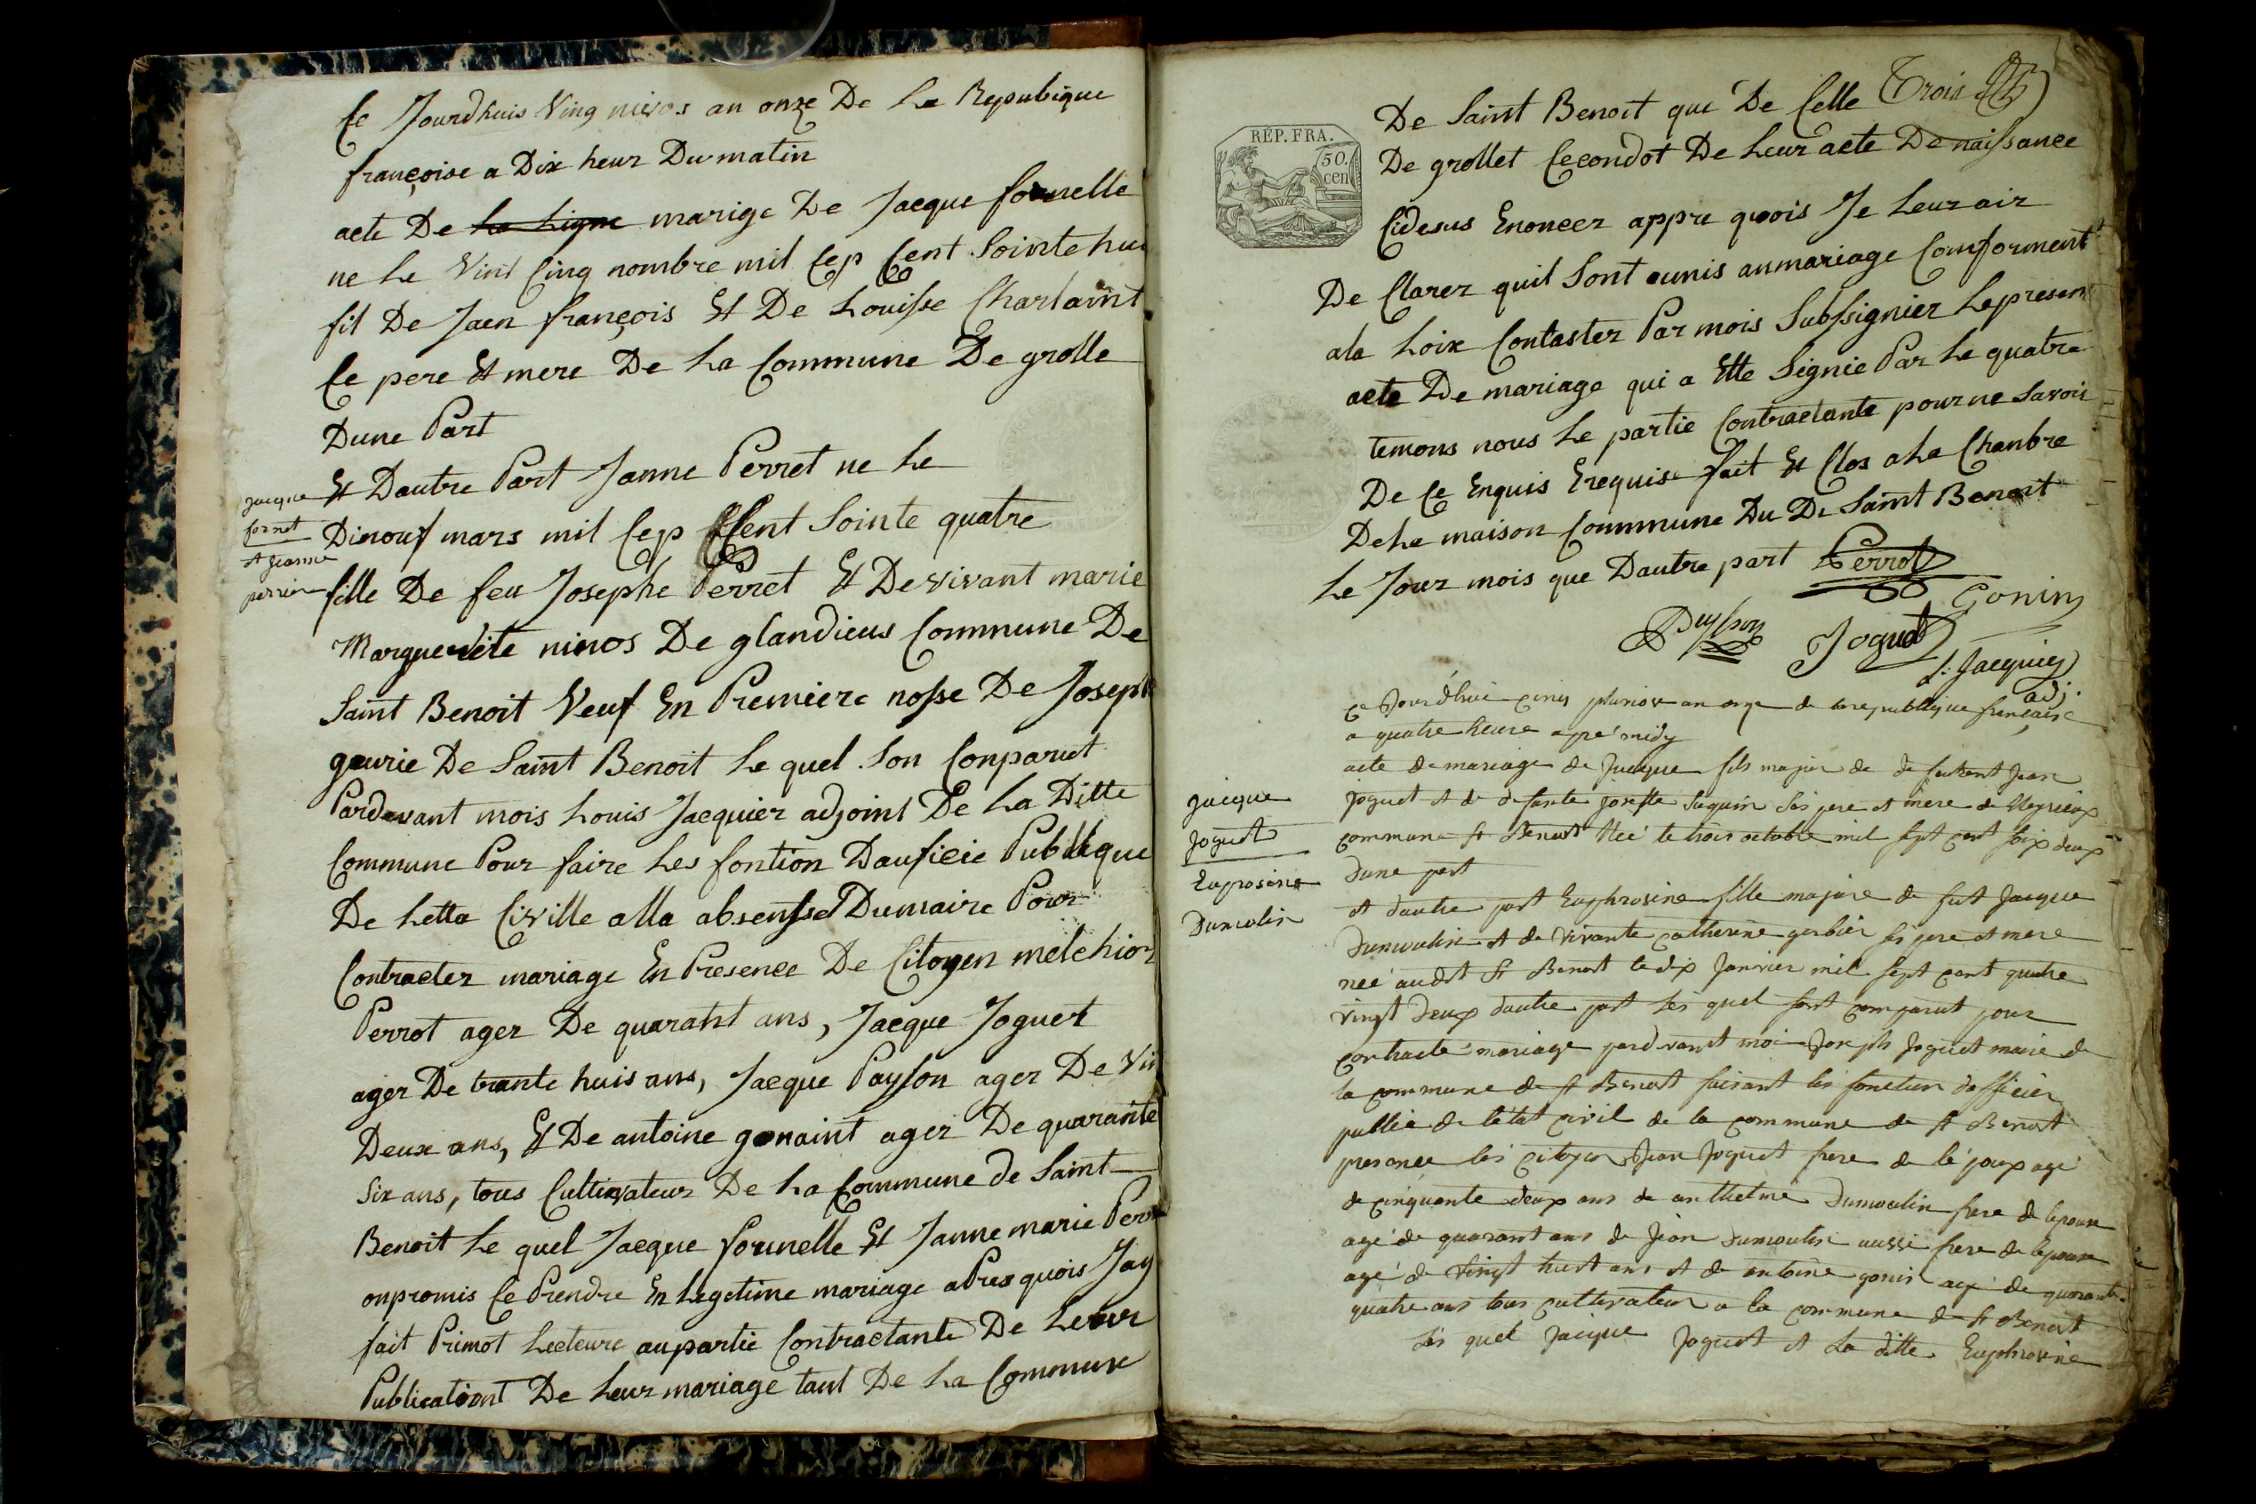 Ce Jourdhuis Ving nivos an onze De La Repubique
françoise a Dix heur Du matin
acte De la Ligne marige De Jacque fornelle
ne Le Vint Cinq nombre mil Cep Cent Sointe hui
fil De Jaen françois Et De Louisse Charlaint
Ce pere Et mere De La Commune De grolle
Dune Part
Et Dautre Part Janne Perret ne Le
Dinouf mars mil Cep Cent Sointe quatre
fille De feu Josephe Perret Et De vivant marie
Marguerite ninos De glandieus Commune De
Saint Benoit Veuf En Premiere nosse De Joseph
gourie De Saint Benoit Le quel Son Conparut
Pardavant mois Louis Jacquier adjoint De La Ditte
Commune Pour faire Les fontion Dauficie Publique
De Letta Civille alla absensse Du maire Pour
Contracter mariage En Presence De Citoyen melchior
Perrot ager De quarant ans, Jacque Joguet
ager De trante huis ans, Jacque Paysson ager De Vin
Deux ans, Et De antoine gonaint ager De quarante
Six ans, tous Cultivateur De La Commune de Saint
Benoit Le quel Jacque fornelle Et Janne marie Perr
onpromis Ce Prendre En Legetime mariage aPres quois Jay
fait Primot Lecteure aupartie Contractante De Leur
Publicationt De Leur mariage tant De La Commune
Jacque
fornet
et jeanne
perrin
Trois
De Saint Benoit que De Celle
De grollet Cecondot De Leur acte De naissance
Cidesus Enoncer appre quois Je Leur air
De Clarer quil Sont unis aumariage Comforment
ala Loix Contaster Par mois Subssignier Le presen
acte De mariage qui a Ette Signie Par Le quatre
temons nous Le partie Contractante pour ne Savoir
De Ce Enquis Erequise fait Et Clos a La Chanbre
De La maison Commune Du De Saint Benoit
Le Jour mois que Dautre part Perrot
Gonin
Paysson Joguet
L. Jacquier
adj.
Ce Jourd'hui cinq pluviose an onze de la republique française
a quatre heure apré midy
acte de mariage de Jacque fils majeur de defunt Jean
Joguet et de defante Josette Suquin Ses pere et mere de
commune St Benoit née le trois octobre mil sept cent soix deux
Dune part
et dautre part Euphrosine fille majore de fut Jacque
Dumoulin et de vivante catherine gerbier Ses pere et mere
née audit St Benoit le dix Janvier mil sept cent quatre
vingt deux dautre part Les quel sont comparut pour
contracte mariage pardevant moi Joseph Joguet maire de
la commune de St Benoit faisant les fonction dofficier
public de létat civil de la commune de St Benoit
presance les citoyen Jean Joguet frere de lé poux agé
de cinquante deux ans de anthelme Dumoulin frere de lepouse
agé de quarant ans de Jean Dumoulin aussi frere de lepouse
agé de vingt huit ans et de antoine gonin agé de quarante
quatre ans tous cultivateur a la commune de St Benoit
Les quel Jacque Joguet et La ditte Euphrosine
Jacque
Joguet
Euprosine
Dumolin
RÉP. FRA.
50.
cen